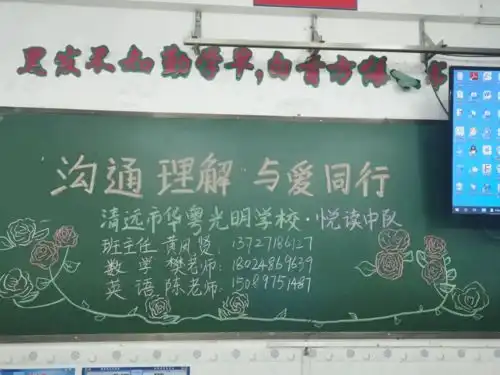 黑发不知勤学早,白首方
沟通 理解 与爱同行
清远市华粤光明学校·悦读中队
班主任 黄凤贤: 13727186127
数学 樊老师: 18024869639
英语 陈老师: 15089751487